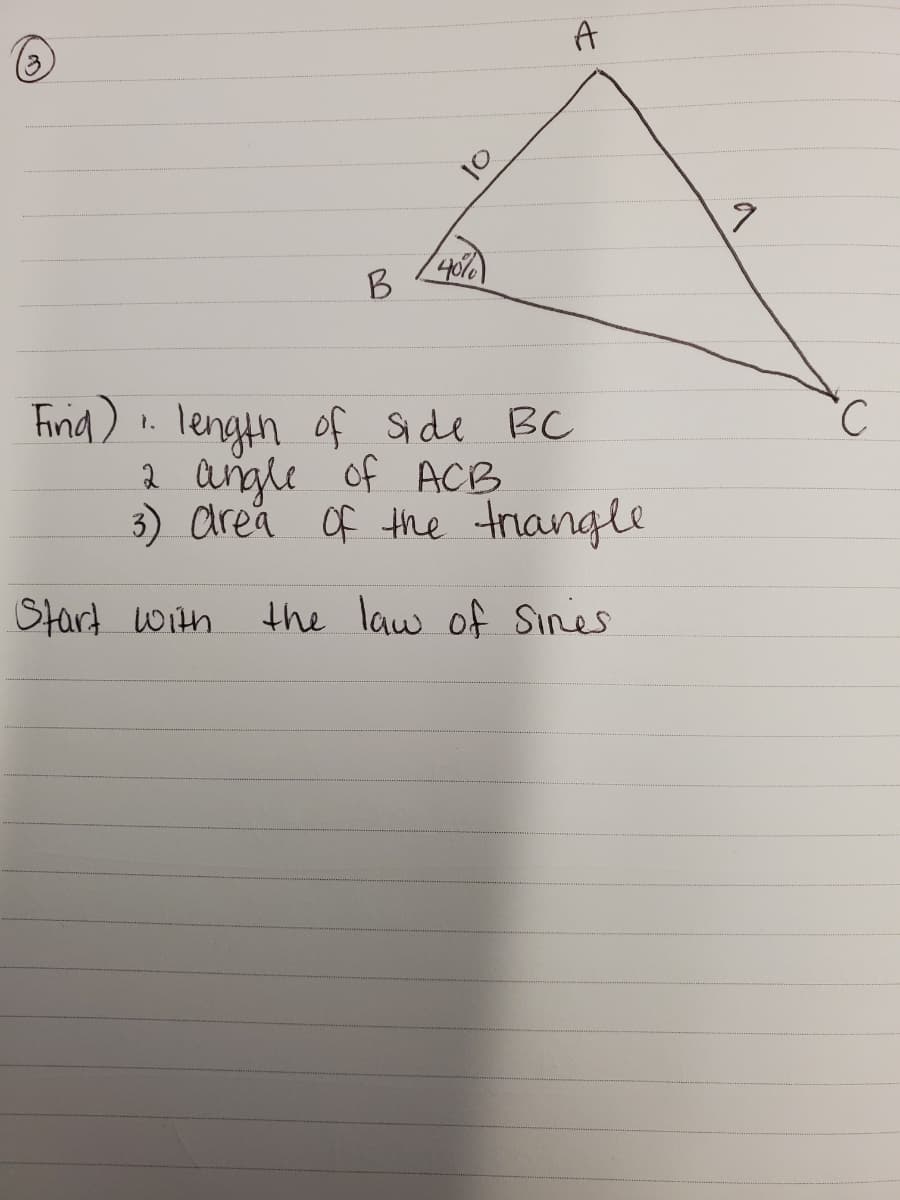 3
A
10
9
40%
B
C
Find) 1. length of side BC
2 angle of ACB
3) area of the triangle
Start with the law of Sines